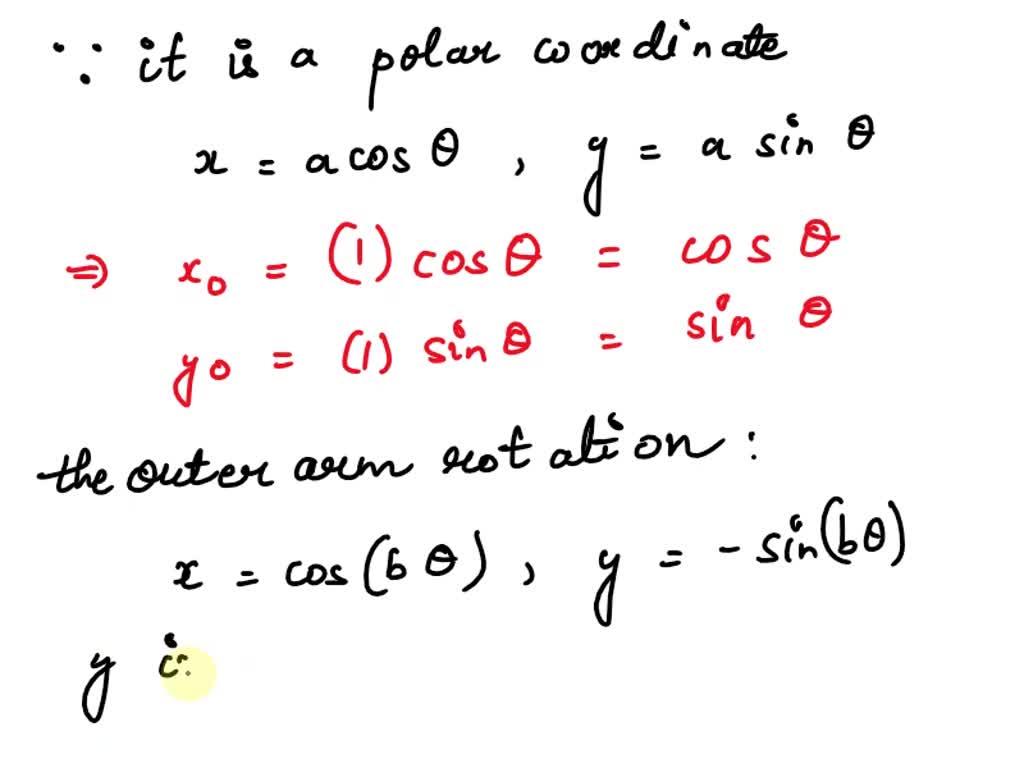 ∵ it is a polar coordinate
x = a cos θ , y = a sin θ
⇒ x₀ = (1) cos θ = cos θ
y₀ = (1) sin θ = sin θ
the outer arm rotation :
x = cos (b θ) , y = - sin (b θ)
y